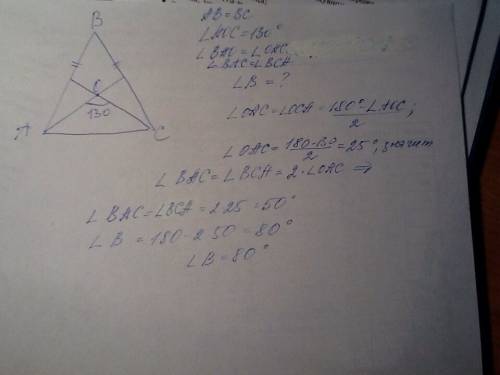 B
O
130
A
C
AB=BC
∠AOC=130°
∠BAO=∠OAC
∠BAC=∠BCA
∠B=?
∠OAC=∠OCA=180°-∠AOC/2;
∠OAC=180-130/2=25°, значит
∠BAC=∠BCA=2·∠OAC ⇒
∠BAC=∠BCA=2·25=50°
∠B=180-2·50=80°
∠B=80°